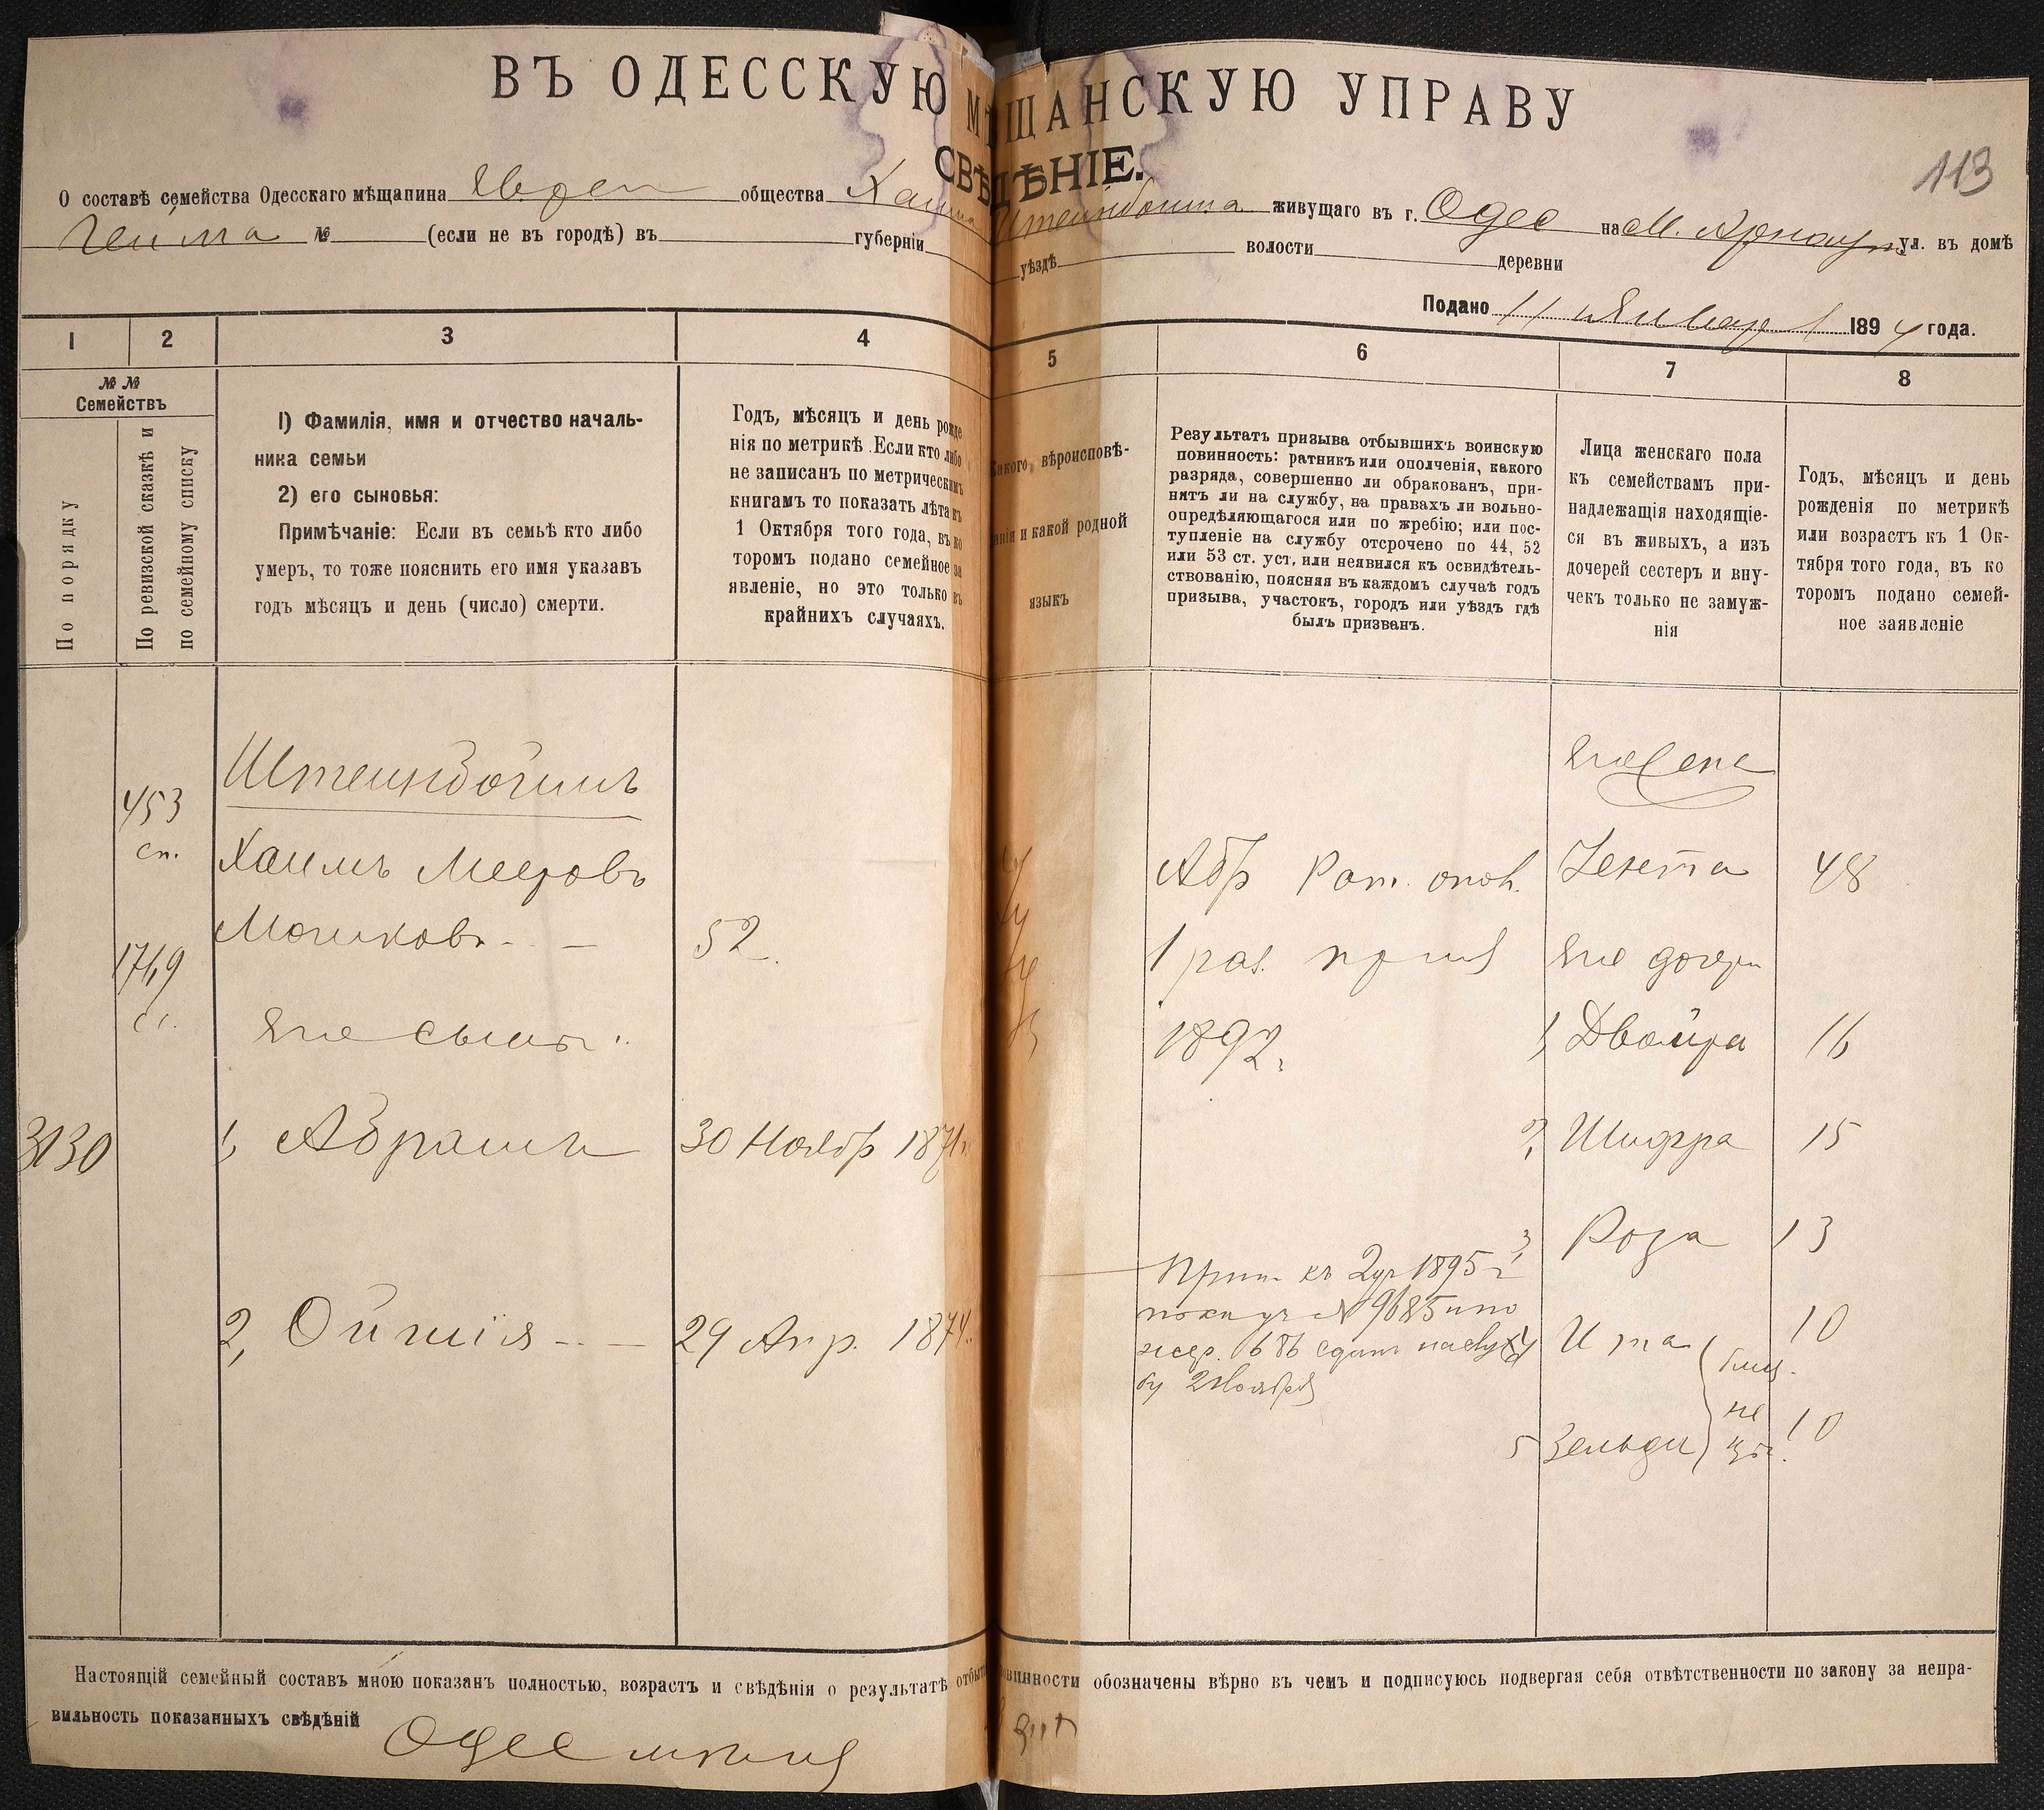 ВЪ ОДЕССКУЮ МѢЩАНСКУЮ УПРАВУ
СВѢДѢНІЕ.
113
О составѣ семейства Одесскаго мѣщанина Еврен общества Хаима Штейнбоима живущаго въ г. Одес на М. Арнаут. ул. въ домѣ
№ (если не въ городѣ) въ губерніи уѣздѣ волости деревни
Подано 11 Января 1894 года.
1 2 3 4 5 6 7 8
№№
Семействъ
По порядку
По ревизской сказкѣ и
по семейному списку
1) Фамилія, имя и отчество началь-
ника семьи
2) его сыновья:
Примѣчаніе: Если въ семьѣ кто либо
умеръ, то тоже пояснить его имя указавъ
годъ мѣсяцъ и день (число) смерти.
Годъ, мѣсяцъ и день рожде
нія по метрикѣ. Если кто либо
не записанъ по метрическимъ
книгамъ то показать лѣта къ
1 Октября того года, въ ко
торомъ подано семейное за
явленіе, но это только въ
крайнихъ случаяхъ.
Какого вѣроисповѣ-
анія и какой родной
языкъ
Результатъ призыва отбывшихъ воинскую
повинность: ратникъ или ополченія, какого
разряда, совершенно ли обракованъ, при-
нятъ ли на службу, на правахъ ли вольно-
опредѣляющагося или по жребію; или пос-
тупленіе на службу отсрочено по 44, 52
или 53 ст. уст. или неявился къ освидѣтель-
ствованію, поясняя въ каждомъ случаѣ годъ
призыва, участокъ, городъ или уѣздъ гдѣ
былъ призванъ.
Лица женскаго пола
къ семействамъ при-
надлежащія находящіе-
ся въ живыхъ, а изъ
дочерей сестеръ и вну-
чекъ только не замуж-
нія
Годъ, мѣсяцъ и день
рожденія по метрикѣ
или возрастъ къ 1 Ок-
тября того года, въ ко
торомъ подано семей-
ное заявленіе
Штейнбоимъ
453
сп.
Хаимъ Мееровъ
Мошковъ - - 52.
1749
Его сыновья:
3130
1, Абрамъ 30 Ноябр 1871
2, Ойшія - - 29 Апр. 1874.
Абр Рат. опол.
1 раз. призыв
1892.
к 1895 г
№ 9685
жер. 686 сдан на служ
бу 2 Ноября
Его жена
48
Его дочери
1, Двойра 16
2, Шифра 15
3, Роза 13
4 Ита 10
5 Зельда 10
близ
не
цы.
Настоящій семейный составъ мною показанъ полностью, возрастъ и свѣдѣнія о результатѣ отбытія повинности обозначены вѣрно въ чемъ и подписуюсь подвергая себя отвѣтственности по закону за непра-
вильность показанныхъ свѣдѣній